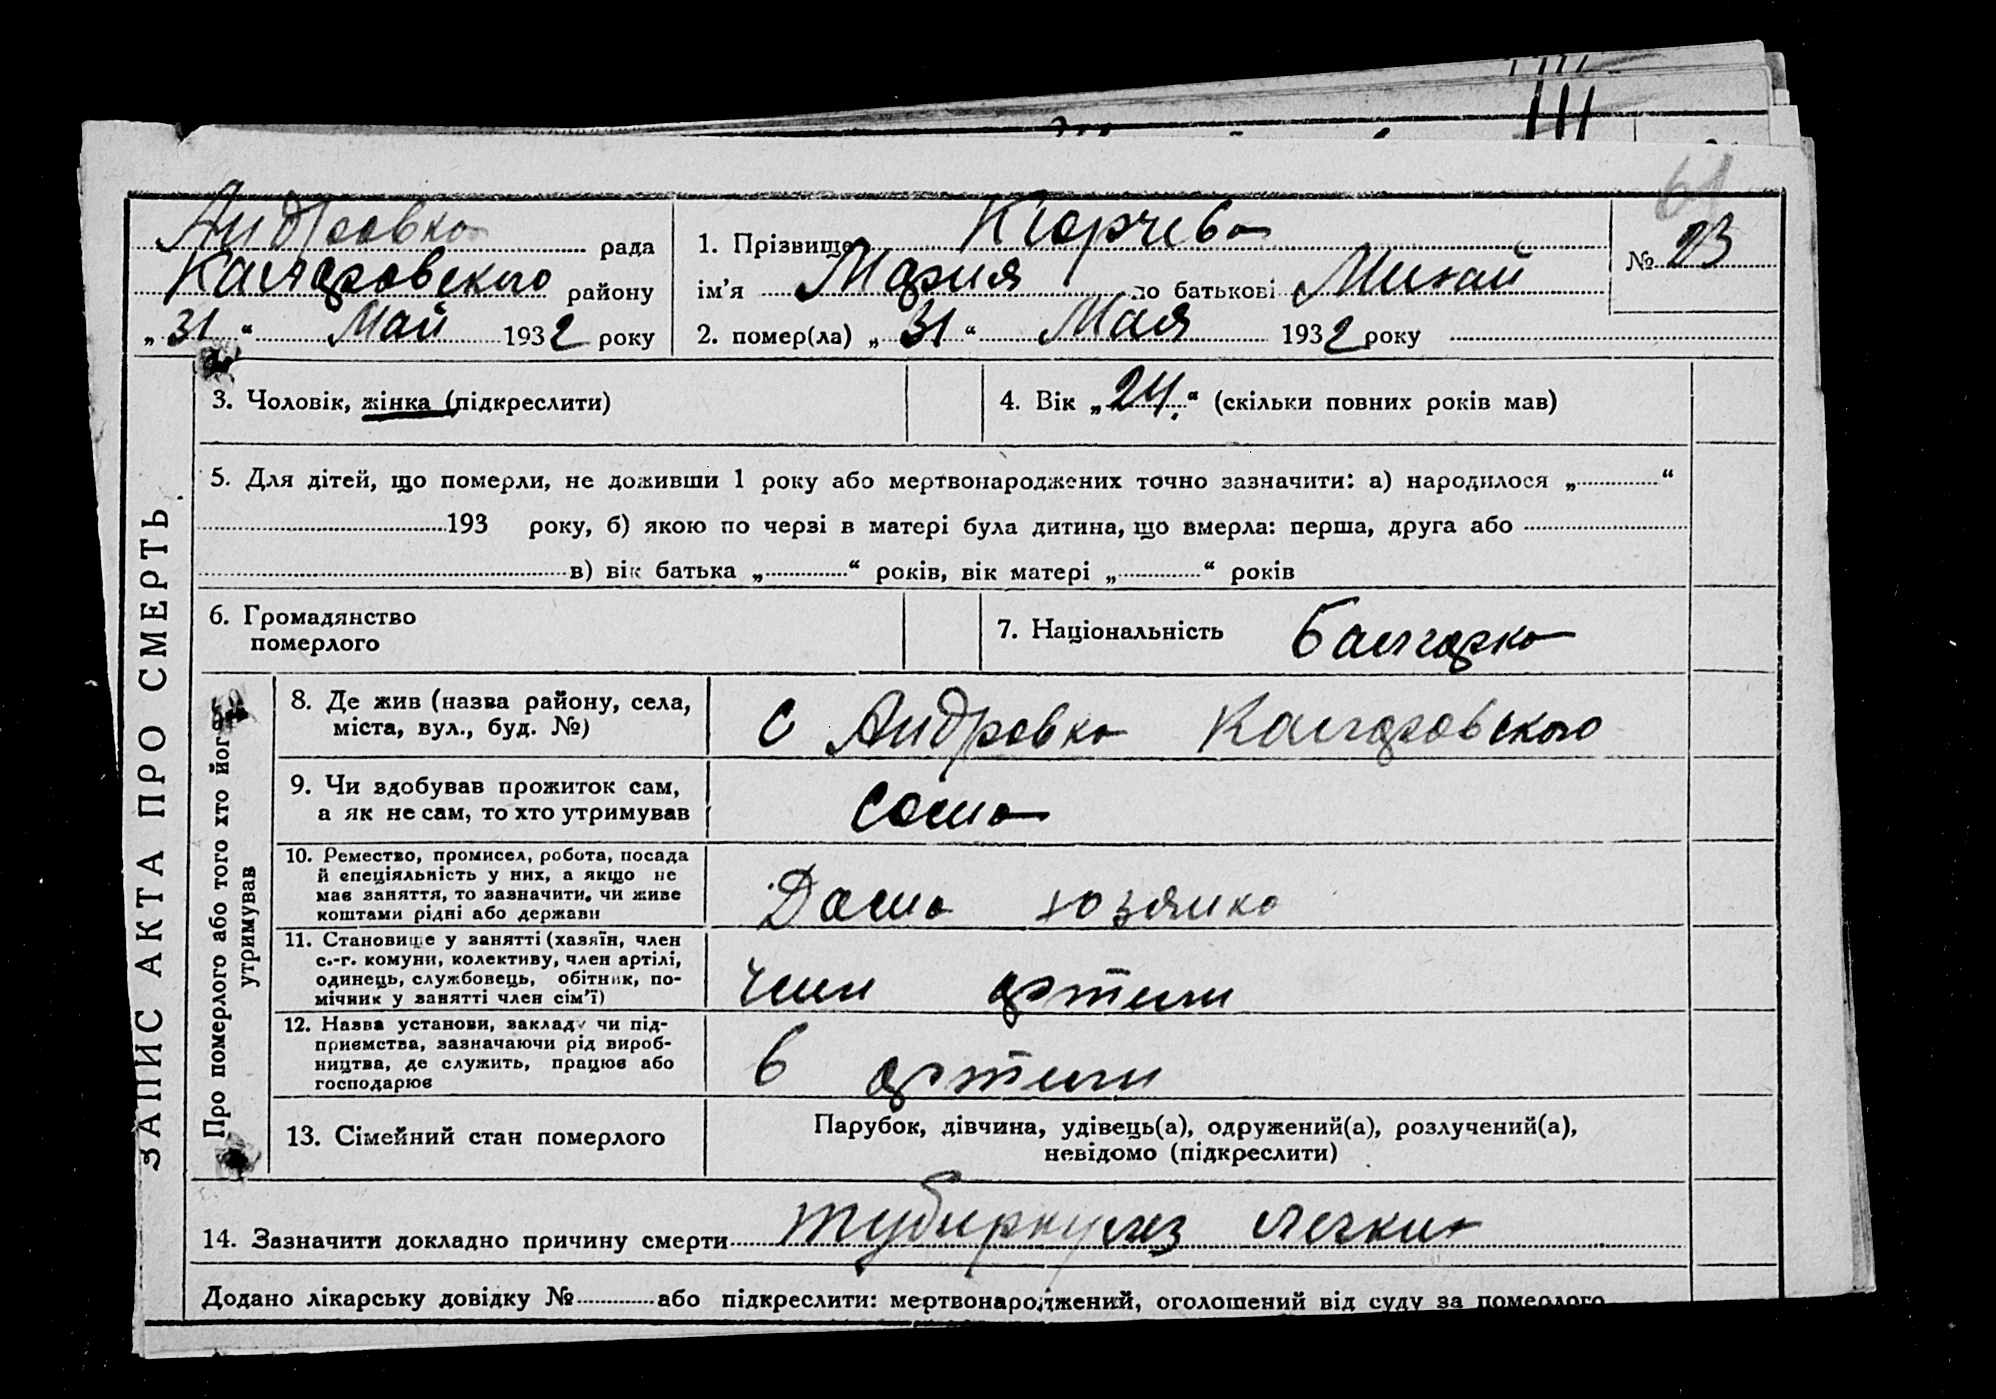 61
Андровка рада
Каларовского району
„31“ Май 1932 року
1. Прізвище Кюрчева
ім’я Мария по батькові Михай
2. помер(ла) „31“ Мая 1932 року
№ 23
3. Чоловік, жінка (підкреслити)
4. Вік „24.“ (скільки повних років мав)
5. Для дітей, що померли, не доживши 1 року або мертвонароджених точно зазначити: а) народилося „ “
193 року, б) якою по черзі в матері була дитина, що вмерла: перша, друга або
в) вік батька „ “ років, вік матері „ “ років
6. Громадянство
померлого
7. Національність Балгарка
ЗАПИС АКТА ПРО СМЕРТЬ
Про померлого або того хто йог
утримував
8. Де жив (назва району, села,
міста, вул., буд. №)
С Андровка Каларовского
9. Чи здобував прожиток сам,
а як не сам, то хто утримував
Сама
10. Ремество, промисел, робота, посада
й спеціяльність у них, а якщо не
мав заняття, то зазначити, чи живе
коштами рідні або держави
Дама хозямка
11. Становище у занятті (хазяїн, член
с.-г. комуни, колективу, член артілі,
одинець, службовець, обітник, по-
мічник у занятті член сім’ї)
член артели
12. Назва установи, закладу чи під-
приємства, зазначаючи рід вироб-
ництва, де служить, працює або
господарює
в артели
13. Сімейний стан померлого
Парубок, дівчина, удівець(а), одружений(а), розлучений(а),
невідомо (підкреслити)
14. Зазначити докладно причину смерти тубиркулез легких
Додано лікарську довідку № або підкреслити: мертвонароджений, оголошений від суду за померлого